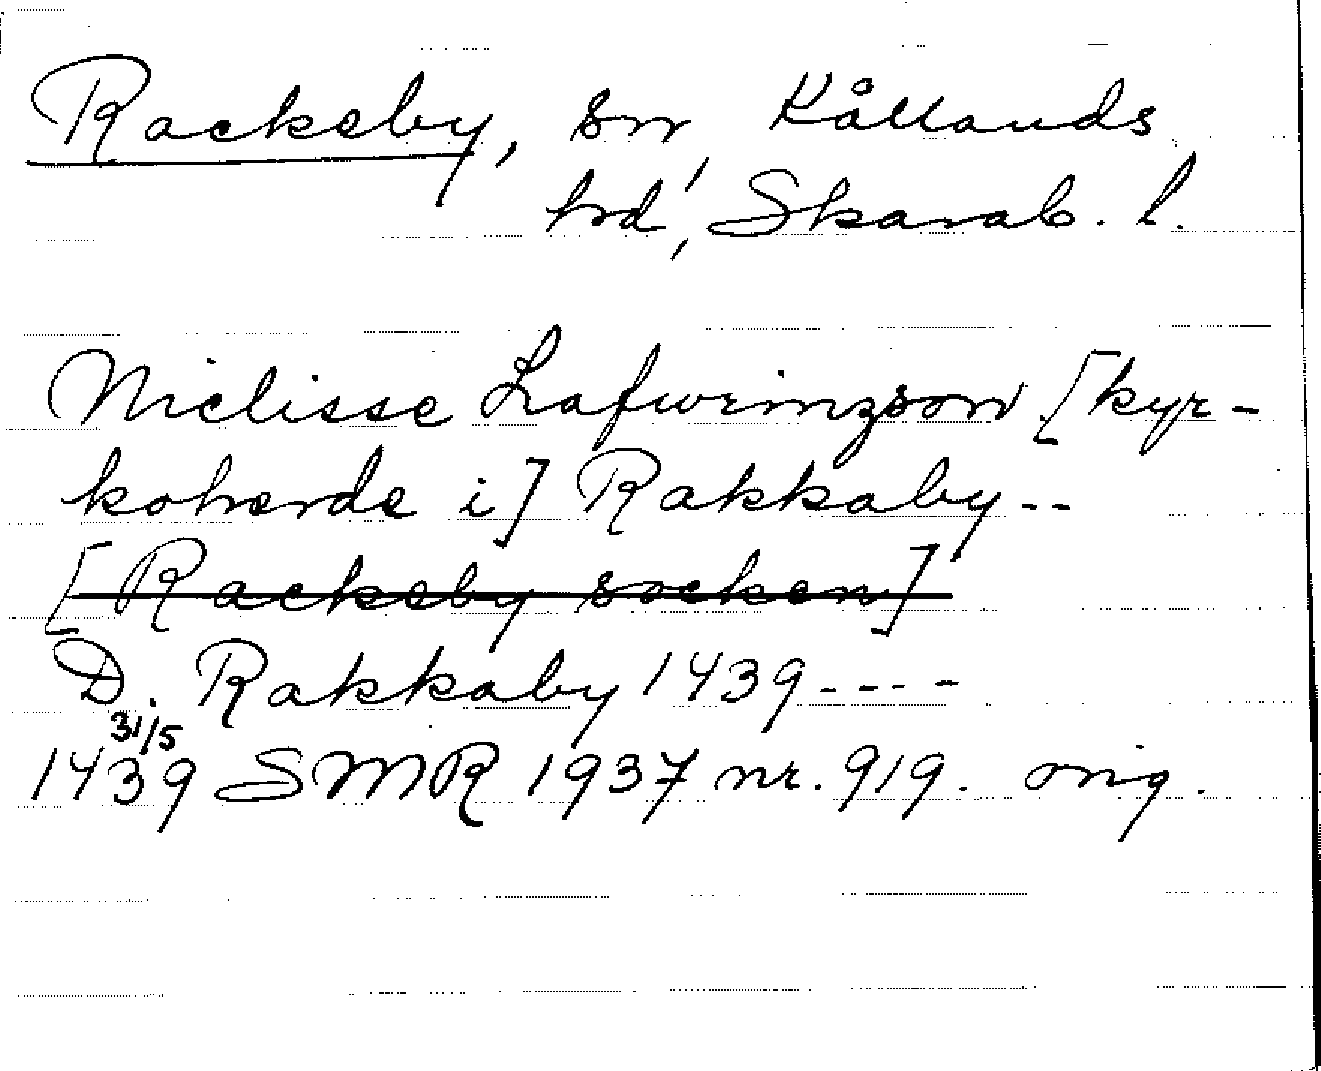 Rackeby, sn, Kållands
hd, Skarab. l.
Niclisse Lafwrinzson [kyr-
koherde i] Rakkaby --
[Rackeby socken]
D. Rakkaby 1439 ----
31/5
1439 SMR 1937 nr. 919. orig.